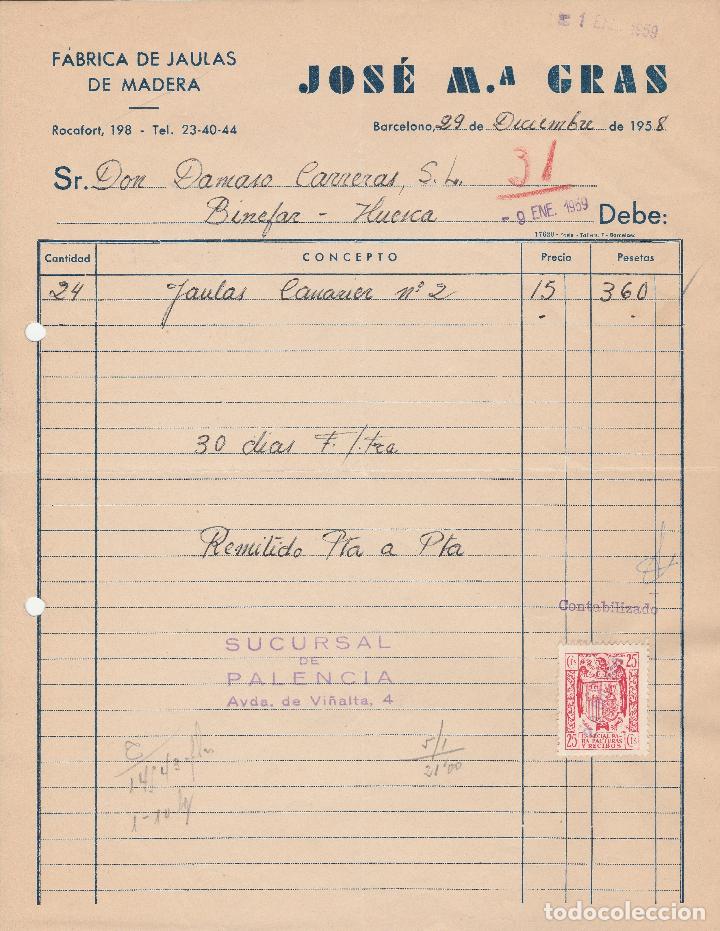 1 1959
FÁBRICA DE JAULAS
DE MADERA
JOSÉ M.ª GRAS
Rocafort, 198 - Tel. 23-40-44
Barcelona, 29 de Diciembre de 1958
31
Sr. Don Damaso Carreras, S.L.
Binefar - Huesca
- 9 ENE. 1959
Debe:
Cantidad CONCEPTO Precio Pesetas
24 Jaulas Canarier nº 2 15 360
- -
30 dias F./fra
Remitido Pta a Pta
Contabilizado
SUCURSAL
DE
PALENCIA
Avda. de Viñalta, 4
Cts 25
25 Cts
ESPECIAL PA-
RA FACTURAS
Y RECIBOS
5/1
21'00
todocoleccion.net